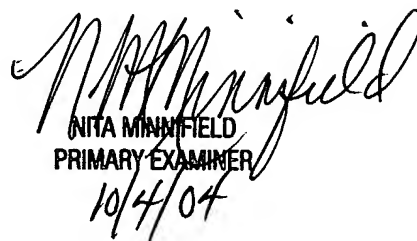 N M Minnifield
NITA MINNIFIELD
PRIMARY EXAMINER
10/4/04